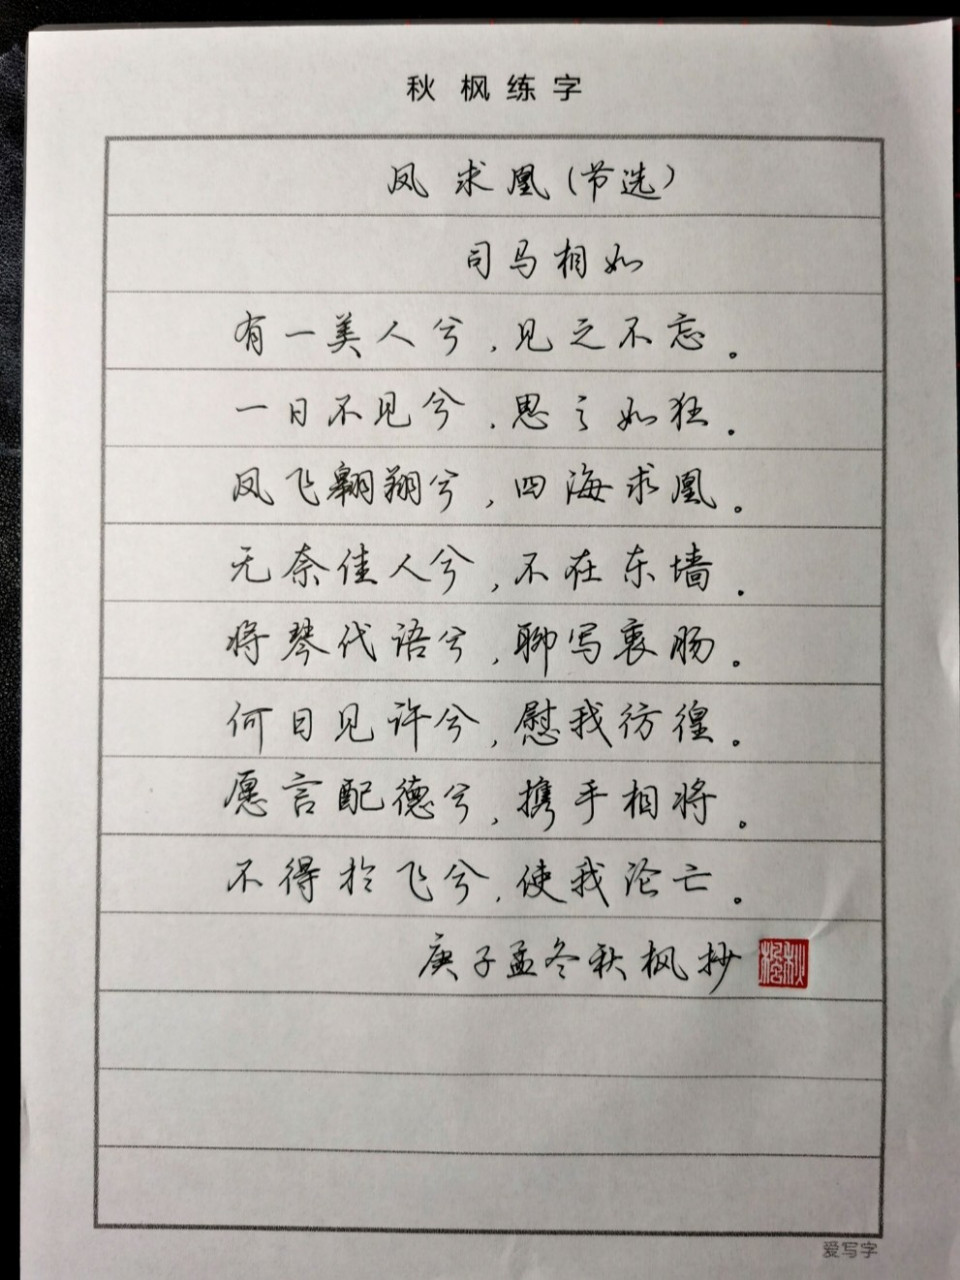 秋枫练字
凤求凰(节选)
司马相如
有一美人兮,见之不忘。
一日不见兮,思之如狂。
凤飞翱翔兮,四海求凰。
无奈佳人兮,不在东墙。
将琴代语兮,聊写衷肠。
何日见许兮,慰我彷徨。
愿言配德兮,携手相将。
不得於飞兮,使我沦亡。
庚子孟冬秋枫抄
秋枫
爱写字